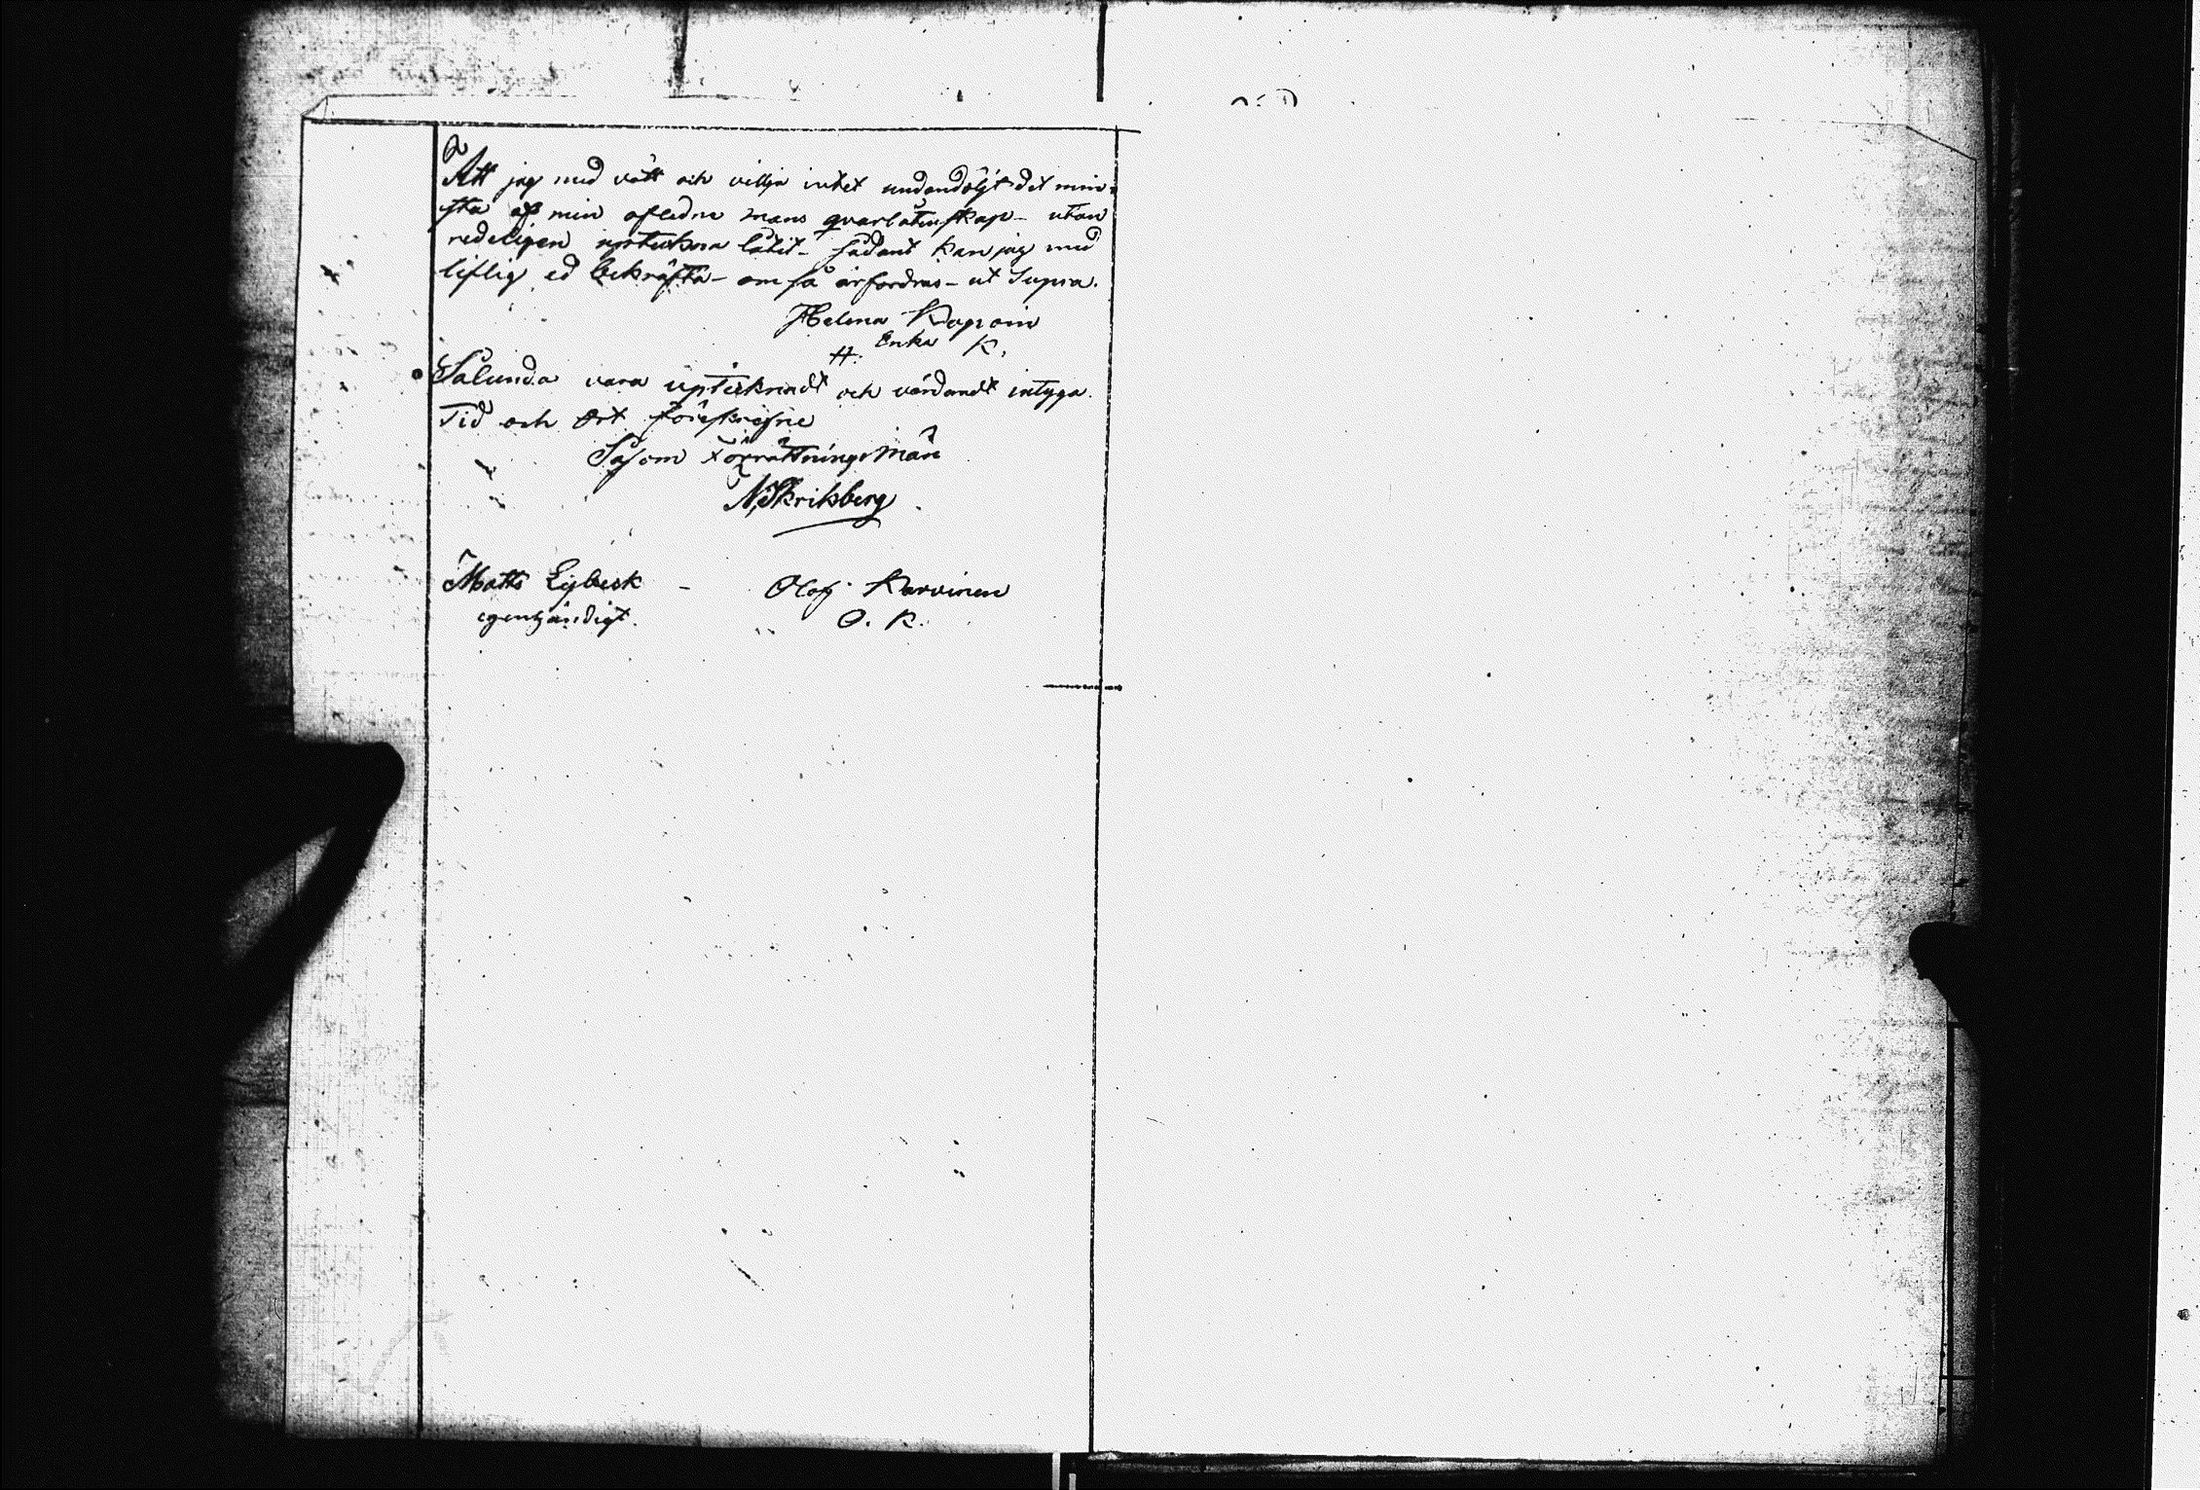 Att jag med vätt och vilja intet undandöljt det min-
sta af min afledne mans qvarlåtenskap – utan
redeligen upteckna låtit – sådant kan jag med
liflig ed bekräfta – om så ärfordras – ut Supra.
Helena
Enka
H. K.
Sålunda vara uptecknadt och värdandt intyga.
Tid och Ort föreskrefne
Såsom Förrättningsmän
N Skriksberg
Matts Lybeck – Olof Karvinen
egenhändigt. O. K.